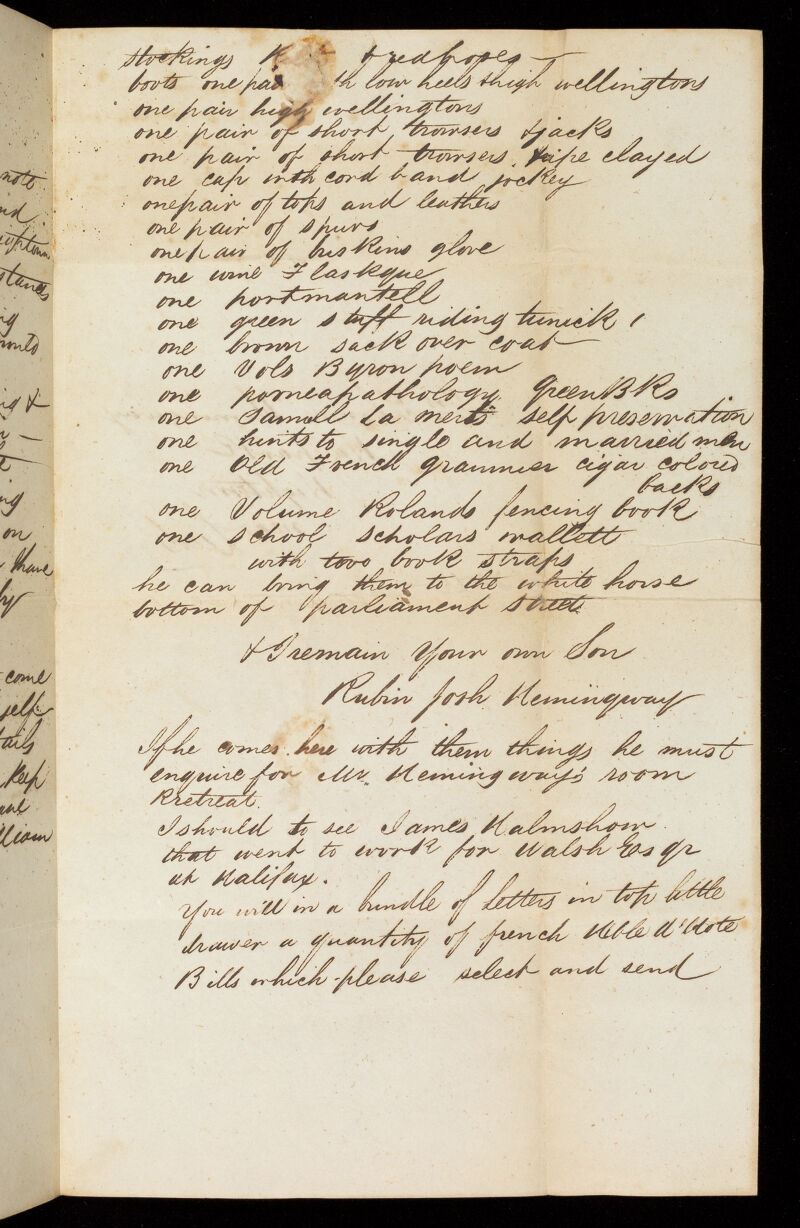 not
nd
uptown
stances
ng
ronto
ng &
ng
on
thare
by
come
self
tails
keep
lliam
stockings & red
boots one pai th low heels & high wellingtons
one pair high wellingtons
one pair of short trowsers & jacks
one pair of short trowsers. & ipe clayed
one cap with cord band jockey
one pair of tops and leathers
one pair of spurs
one pair of glove
one wine Flaskque
one portmantell
one green stuff riding tunick
one brown sack over coat
one Vols Byron poem
one pornea pathology Green BKs
one Samuel La Merts self preservation
one hints to single and married men
one Old French grammer cigar colored
backs
one Volume Rolands fencing book
one school scholars wallett
with towo book straps
he can bring them to the white horse
bottom of parliament street.
& I remain Your own Son
Rubin Josh Hemingway
If he comes here with them things he must
enquire for Mr. Hemingway's room
Retreat.
I should to see James Halmshow
that went to work for Walsh Esqr
at Halifax.
You will in a bundle of letters in top little
drawer a quantity of french d'Hote
Bills which please select and send